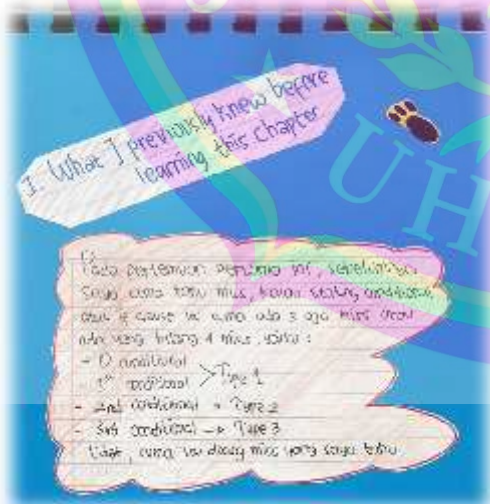 1. What I previously knew before
learning this chapter
Pada pertemuan pertama ini, sebelumnya
saya cuma tahu miss, kalau conditional
atau if clause itu cuma ada 3 aja miss atau
ada yang bilang 4 miss, yaitu :
- 0 conditional
- 1st conditional > Type 1
- 2nd conditional → Type 2
- 3rd conditional → Type 3
cuma itu doang miss yang saya tahu.
UH